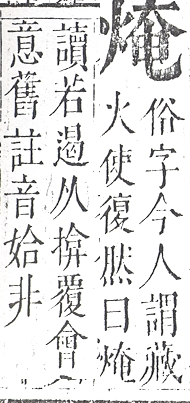 㷈
俗字今人謂藏
火使復㷊曰㷈
讀若遏从揜覆會
意舊註音始非